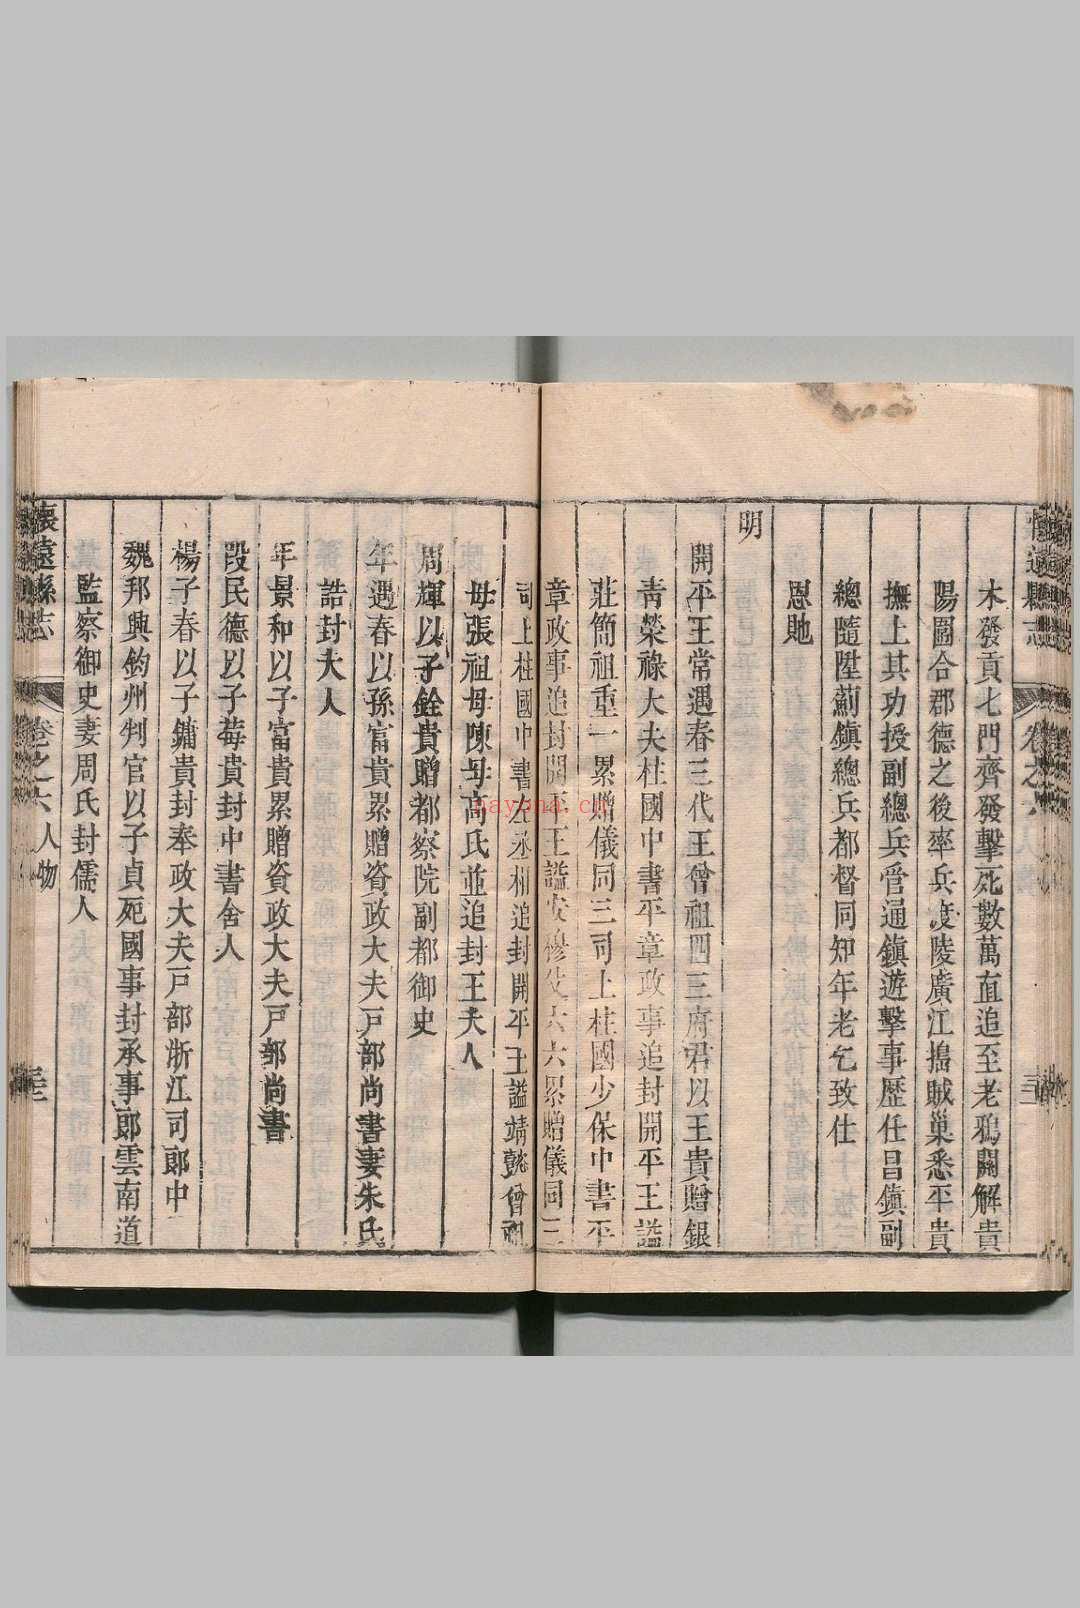 懷遠縣志 卷之六 人物 三
木發貢七門齊發擊死數萬直追至老鴉關解貴
陽圍合郡德之後率兵度陵廣江搗賊巢悉平貴
撫上其功授副總兵管通鎮遊擊事歷任昌鎮副
總隨陞薊鎮總兵都督同知年老乞致仕
恩貤
明
開平王常遇春三代王曾祖四三府君以王貴贈銀
青榮祿大夫柱國中書平章政事追封開平王諡
莊簡祖重一累贈儀同三司上柱國少保中書平
章政事追封開平王諡安穆父六六累贈儀同三
司上柱國中書左丞相追封開平王諡靖懿曾祖
母張祖母陳母高氏並追封王夫人
周輝以子銓貴贈都察院副都御史
年遇春以孫富貴累贈資政大夫戸部尚書妻朱氏
誥封夫人
年景和以子富貴累贈資政大夫戸部尚書
段民德以子莓貴封中書舍人
楊子春以子鏞貴封奉政大夫戸部浙江司郎中
魏邦興鈞州判官以子貞死國事封承事郎雲南道
監察御史妻周氏封儒人
懷遠縣志 卷之六 人物 三
nayona.cn